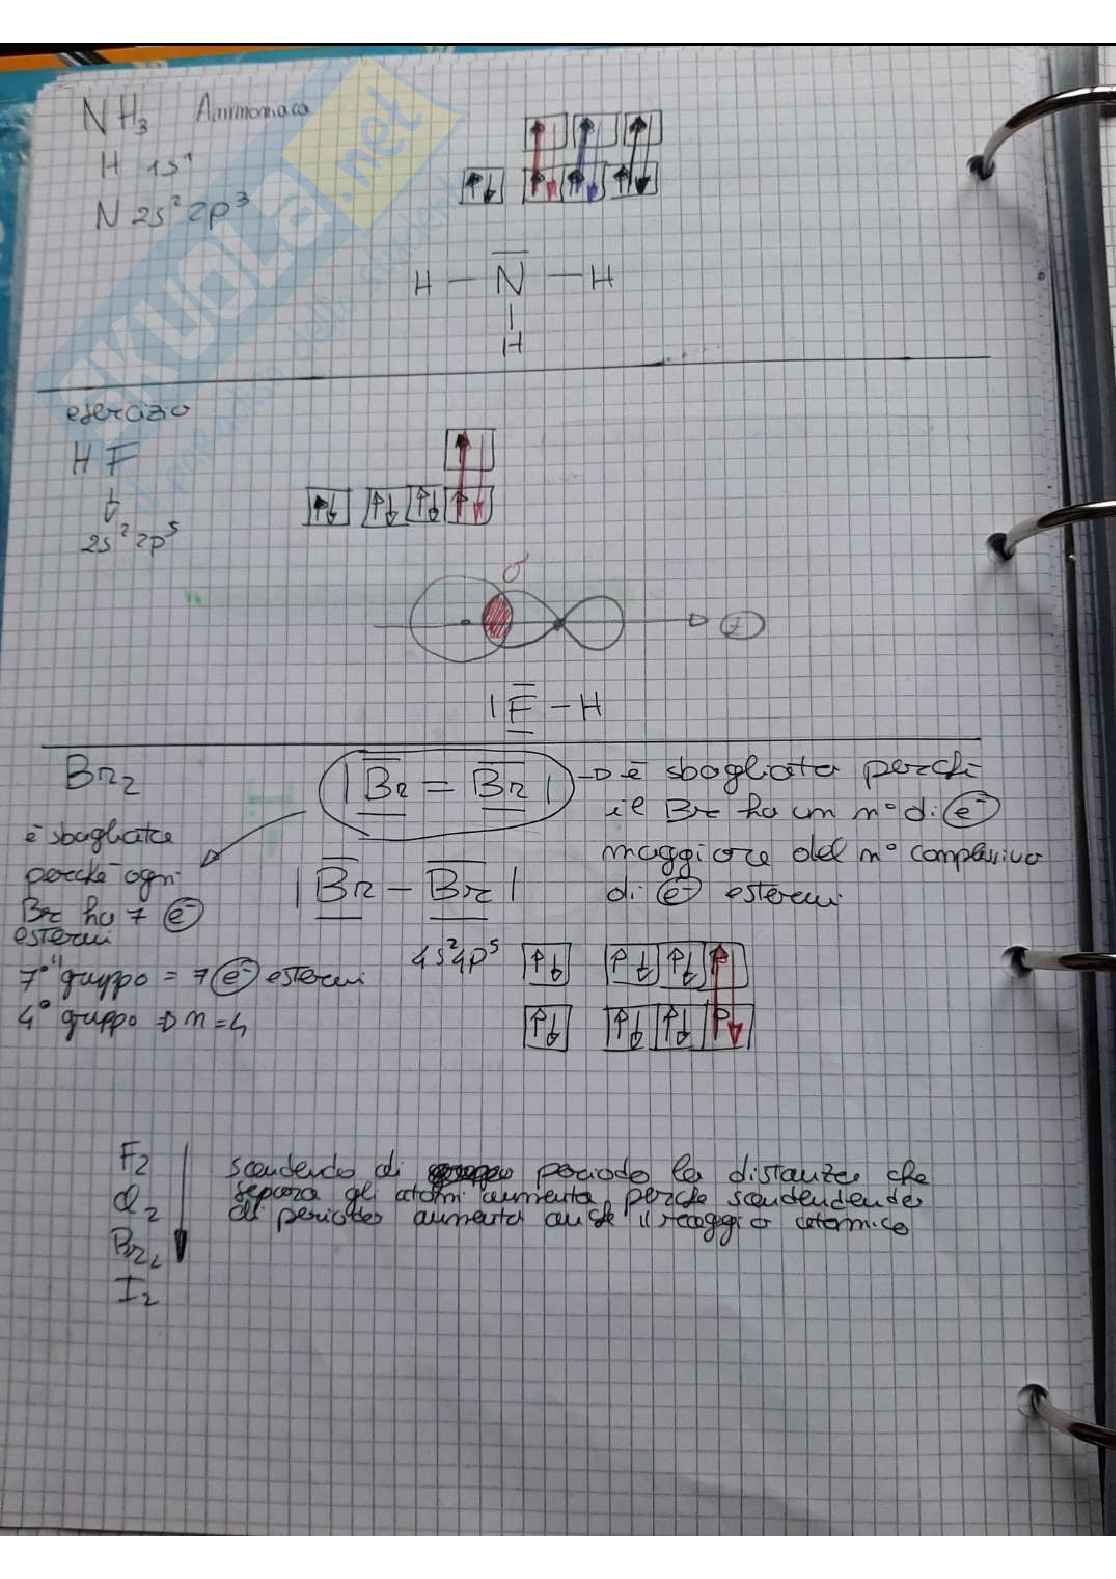 NH3 Ammoniaca
H 1s¹
N 2s² 2p³
H — N — H
H
esercizio
HF
2s² 2p⁵
σ
|F — H
Br2
|Br = Br| → è sbagliata perché
il Br ha un n° di e⁻
maggiore del n° complessivo
di e⁻ esterni
è sbagliata
perché ogni
Br ha 7 e⁻
esterni
|Br — Br|
4s² 4p⁵
7° gruppo = 7 e⁻ esterni
4° gruppo ⇒ n=4
F2
Cl2
Br2
I2
scendendo di periodo la distanza che
separa gli atomi aumenta, perché scendendendo
di periodo aumenta anche il raggio atomico
SKUOLA.net